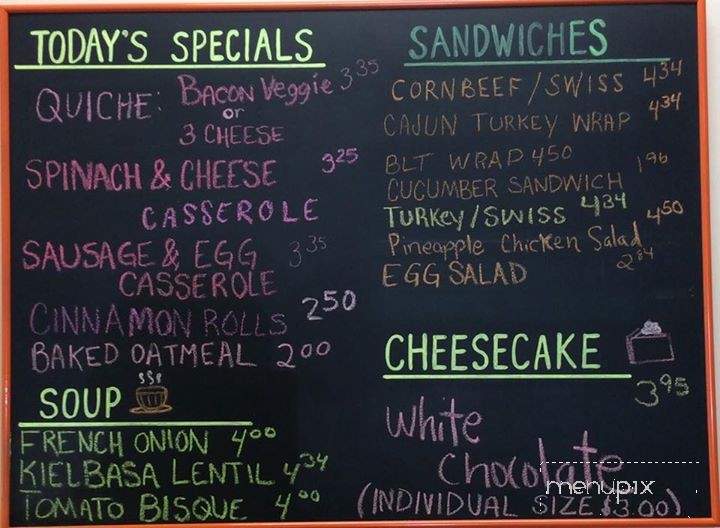 TODAY'S SPECIALS
QUICHE: BACON Veggie 3 35
or
3 CHEESE
SPINACH & CHEESE 3 25
CASSEROLE
SAUSAGE & EGG 3 35
CASSEROLE
CINNAMON ROLLS 2 50
BAKED OATMEAL 2 00
SOUP
FRENCH ONION 4 00
KIELBASA LENTIL 4 34
TOMATO BISQUE 4 00
SANDWICHES
CORNBEEF / SWISS 4 34
CAJUN TURKEY WRAP 4 34
BLT WRAP 4 50
CUCUMBER SANDWICH 1 96
TURKEY / SWISS 4 34
Pineapple Chicken Salad 4 50
EGG SALAD 2 84
CHEESECAKE
3 95
White
Chocolate
(INDIVIDUAL SIZE $5.00)
menupix